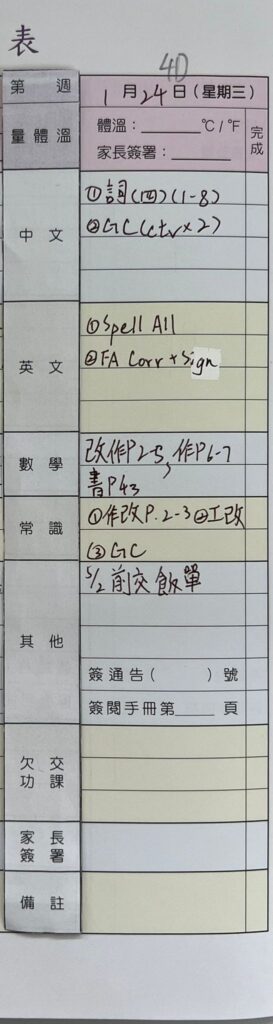 表
40
第 週
1月24日(星期三)
量體溫
體溫:______℃/℉
家長簽署:______
完成
中文
①詞(四)(1-8)
②GC(ctrx2)
英文
①Spell All
②FA Corr + Sign
數學
改作P2-5,作P6-7
書P43
常識
①作改P.2-3②工改
③GC
其他
5/2前交飯單
簽通告( )號
簽閱手冊第____頁
欠交功課
家長簽署
備註